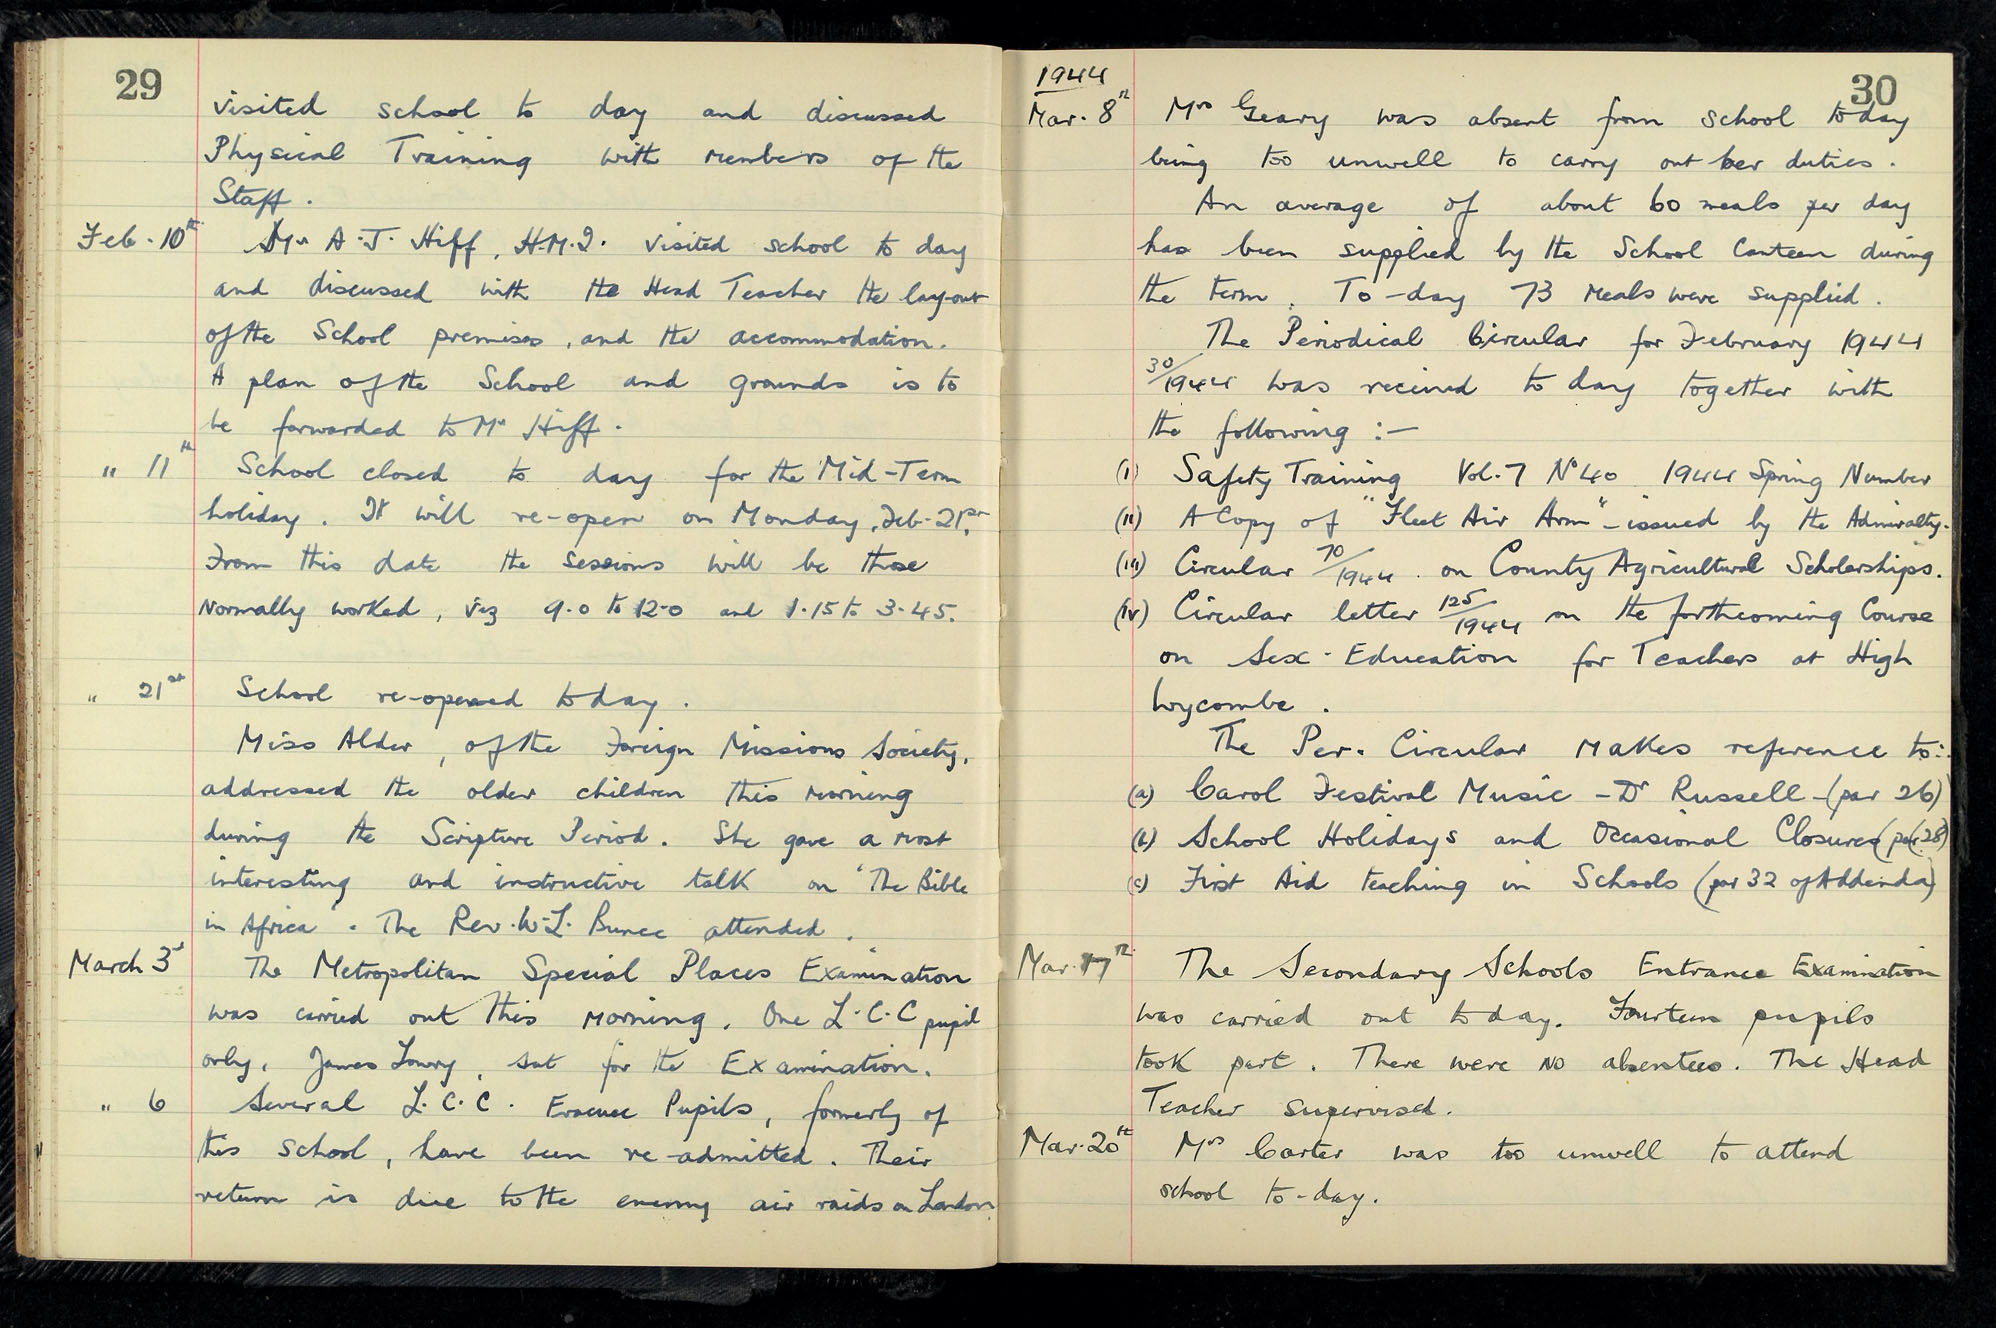 29
visited school to day and discussed
Physical Training with members of the
Staff.
Feb. 10th Mr A. J. Hiff, H.M.I. visited school to day
and discussed with the Head Teacher the lay-out
of the School premises, and the accommodation.
A plan of the School and grounds is to
be forwarded to Mr Hiff.
" 11th School closed to day for the Mid-Term
holiday. It will re-open on Monday, Feb. 21st.
From this date the sessions will be those
normally worked, viz 9.0 to 12.0 and 1.15 to 3.45.
" 21st School re-opened today.
Miss Alder, of the Foreign Missions Society,
addressed the older children this morning
during the Scripture Period. She gave a most
interesting and instructive talk on 'The Bible
in Africa'. The Rev. W. L. Bunce attended.
March 3rd The Metropolitan Special Places Examination
was carried out this morning. One L.C.C pupil
only, James Lowry, sat for the Examination.
" 6 Several L.C.C. Evacuee Pupils, formerly of
this school, have been re-admitted. Their
return is due to the enemy air raids on London
1944
30
Mar. 8th Mrs Geary was absent from school today
being too unwell to carry out her duties.
An average of about 60 meals per day
has been supplied by the School Canteen during
the term. To-day 73 meals were supplied.
The Periodical Circular for February 1944
30/1944 was received to day together with
the following :—
(i) Safety Training Vol. 7 No 40 1944 Spring Number
(ii) A Copy of "Fleet Air Arm" - issued by the Admiralty.
(iii) Circular 70/1944 on County Agricultural Scholarships.
(iv) Circular letter 125/1944 on the forthcoming Course
on Sex-Education for Teachers at High
Wycombe.
The Per. Circular makes reference to:-
(a) Carol Festival Music - Dr Russell - (par 26)
(b) School Holidays and Occasional Closures (par 28)
(c) First Aid teaching in Schools (par 32 of Addenda)
Mar. 17th The Secondary Schools Entrance Examination
was carried out today. Fourteen pupils
took part. There were no absentees. The Head
Teacher supervised.
Mar. 20th Mrs Carter was too unwell to attend
school to-day.